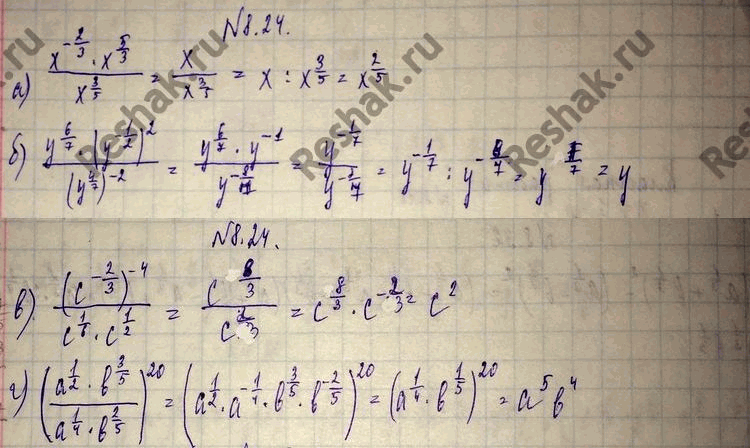 №8.24.
а) \frac{x^{-\frac{2}{3}} \cdot x^{\frac{5}{3}}}{x^{\frac{3}{5}}} = \frac{x}{x^{\frac{3}{5}}} = x : x^{\frac{3}{5}} = x^{\frac{2}{5}}
б) \frac{y^{\frac{6}{7}} \cdot (y^{-\frac{1}{2}})^2}{(y^{\frac{4}{7}})^{-2}} = \frac{y^{\frac{6}{7}} \cdot y^{-1}}{y^{-\frac{8}{7}}} = \frac{y^{-\frac{1}{7}}}{y^{-\frac{8}{7}}} = y^{-\frac{1}{7}} : y^{-\frac{8}{7}} = y^{\frac{7}{7}} = y
№8.24.
в) \frac{(c^{-\frac{2}{3}})^{-4}}{c^{\frac{1}{6}} \cdot c^{\frac{1}{2}}} = \frac{c^{\frac{8}{3}}}{c^{\frac{2}{3}}} = c^{\frac{8}{3}} \cdot c^{-\frac{2}{3}} = c^2
г) \left(\frac{a^{\frac{1}{2}} \cdot b^{\frac{3}{5}}}{a^{\frac{1}{4}} \cdot b^{\frac{2}{5}}}\right)^{20} = (a^{\frac{1}{2}} \cdot a^{-\frac{1}{4}} \cdot b^{\frac{3}{5}} \cdot b^{-\frac{2}{5}})^{20} = (a^{\frac{1}{4}} \cdot b^{\frac{1}{5}})^{20} = a^5 b^4
Reshak.ru
Reshak.ru
Reshak.ru